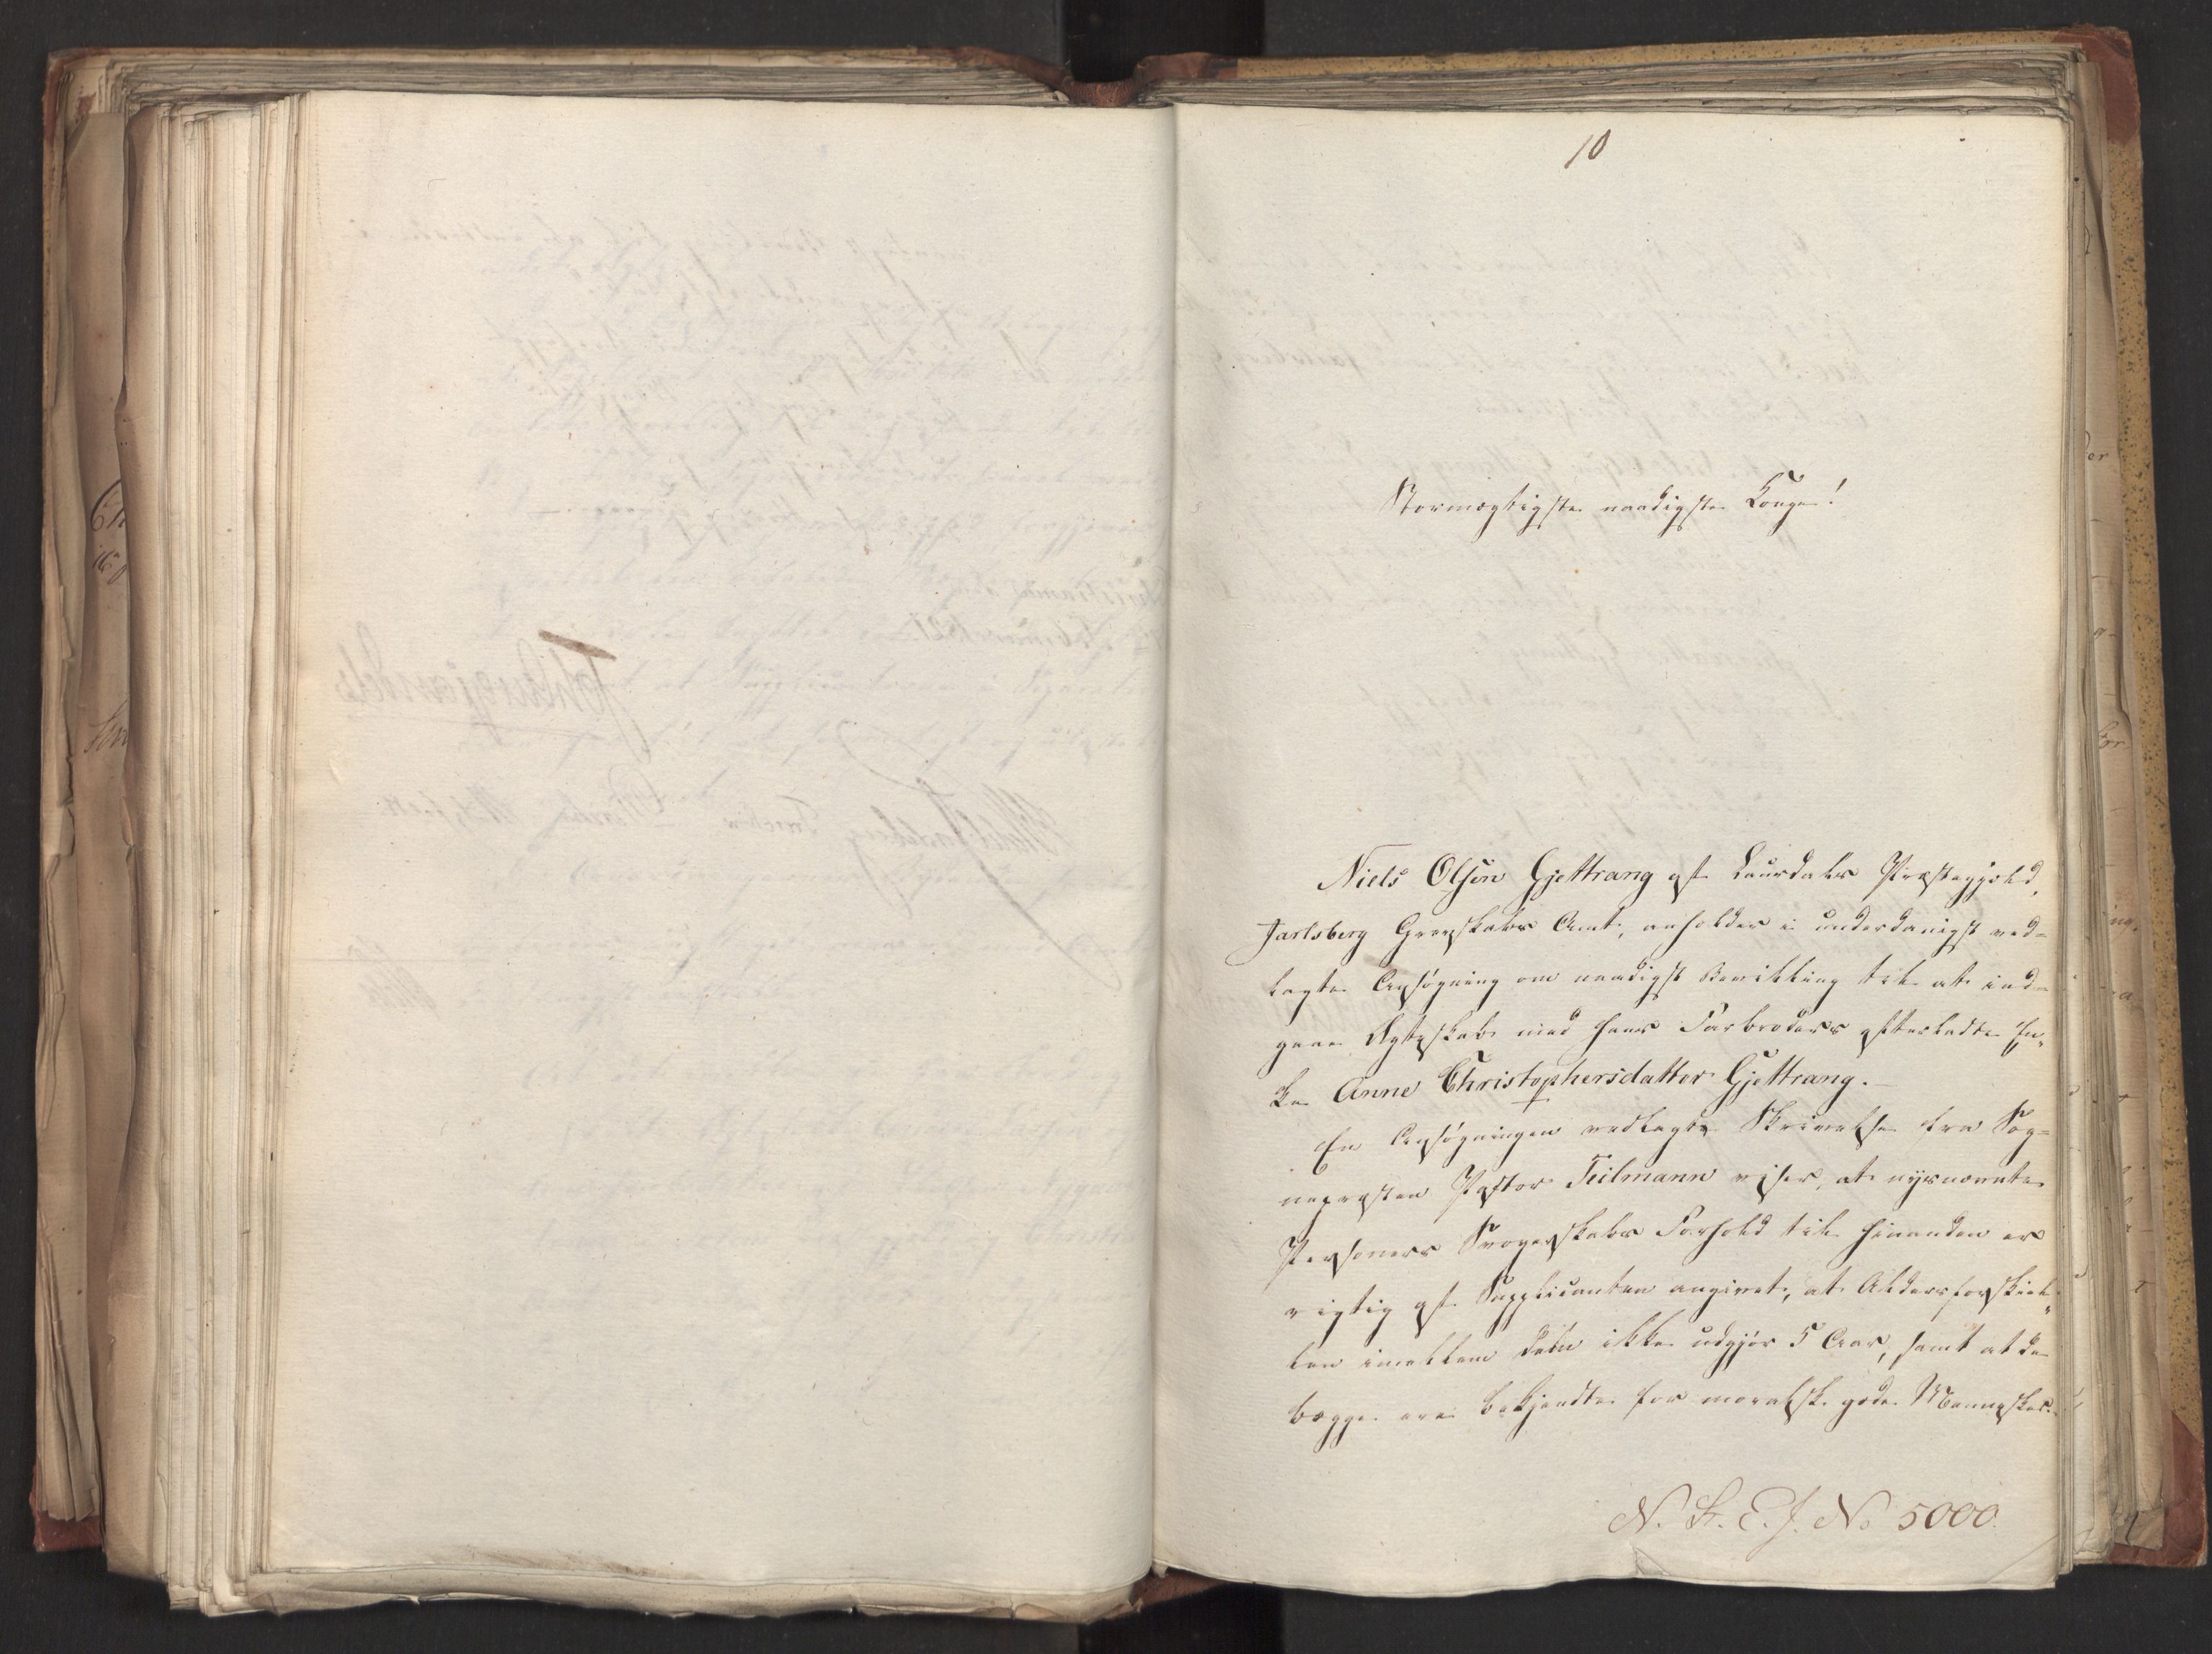 10
Stormægtigste naadigste Konge!
Niels Olsen Gjettrang af Laurdals Præstegjeld,
Jarlsberg Grevskabs Amt, anholder i underdanigst ved-
lagte Ansøgning om naadigst Bevilling til at ind-
gaae Ægteskab med hans Farbroders efterladte En-
ke Anne Christophersdatter Gjettrang.
En Ansøgningen vedlagte Skrivelse fra Sog-
nepresten Pastor Teilmann viser, at nysnævnte
Personers Svogerskabs Forhold til hinanden er
rigtig af Supplicanten angivet, at Aldersforskiel-
len imellem dem ikke udgjør 5 Aar, samt at de
begge ere bekjendte for moralsk gode Mennesker.
N. St. E. J. No 5000.